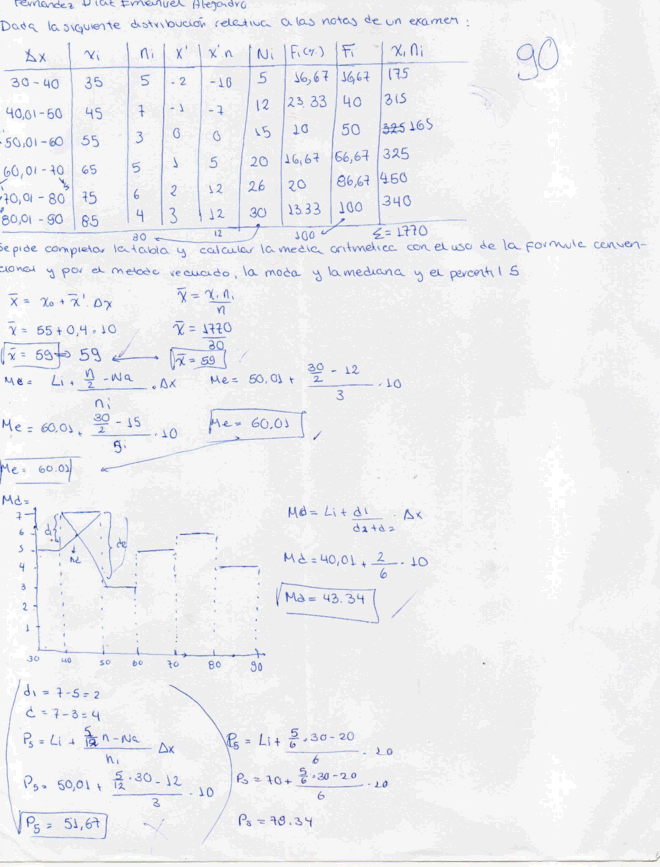 Fernández Díaz Emanuel Alejandro
Dada la siguiente distribución relativa a las notas de un examen:
90
Δx xi ni x' x'n Ni Fi(%) Fi xini
30-40 35 5 -2 -10 5 16,67 16,67 175
40,01-50 45 7 -1 -7 12 23.33 40 315
50,01-60 55 3 0 0 15 10 50 325 165
60,01-70 65 5 1 5 20 16,67 66,67 325
70,01-80 75 6 2 12 26 20 86,67 450
80,01-90 85 4 3 12 30 13.33 100 340
30 12 100 Σ=1770
Se pide completar la tabla y calcular la media aritmética con el uso de la formula conven-
cional y por el metodo reducido, la moda y la mediana y el percentil 5
x̄ = x0 + x̄'.Δx x̄ = xi ni/n
x̄ = 55+0,4.10 x̄ = 1770/30
x̄ = 59 => 59 x̄ = 59
Me = Li + (n/2 - Na)/ni .Δx Me = 50,01 + (30/2 - 12)/3 .10
Me = 60,01 + (30/2 - 15)/5 .10 Me = 60,01
Me = 60.01
Md=
7 6 5 4 3 2 1
d1 d2
30 40 50 60 70 80 90
Md = Li + d1/(d2+d2) . Δx
Md = 40,01 + 2/6 . 10
Md = 43.34
d1 = 7-5 = 2
d = 7-3 = 4
P5 = Li + (5/12 n - Na)/ni Δx P5 = Li + (5/6 .30-20)/6 . 10
P5 = 50,01 + (5/12 .30 - 12)/3 .10 P5 = 70 + (5/6 .30-20)/6 .10
P5 = 51,67 P5 = 78.34